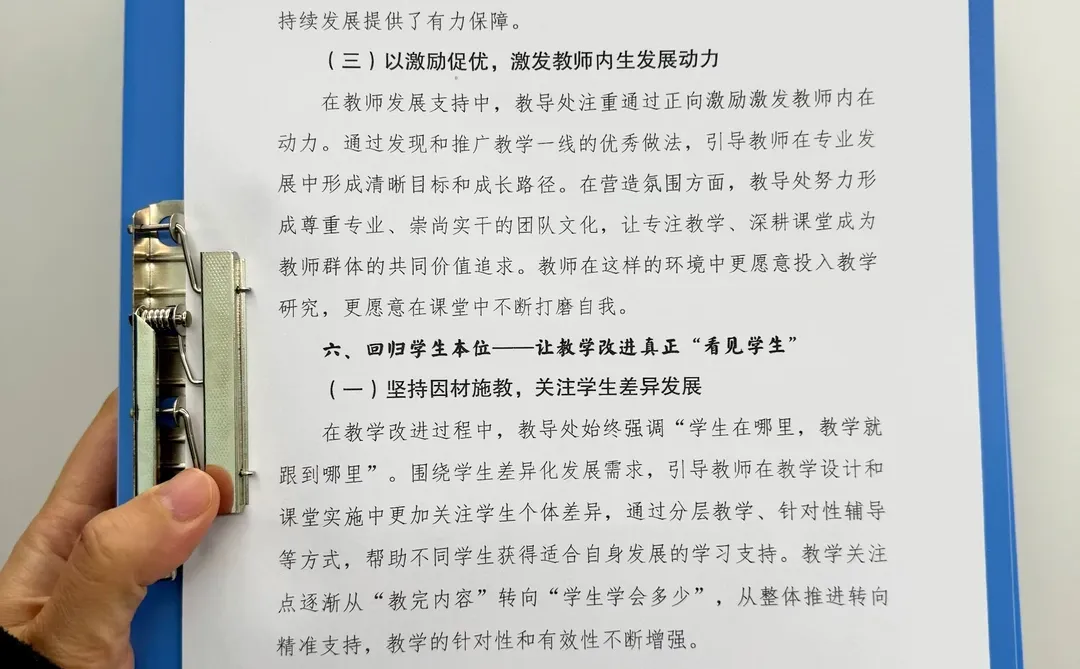 持续发展提供了有力保障。
（三）以激励促优，激发教师内生发展动力
在教师发展支持中，教导处注重通过正向激励激发教师内在
动力。通过发现和推广教学一线的优秀做法，引导教师在专业发
展中形成清晰目标和成长路径。在营造氛围方面，教导处努力形
成尊重专业、崇尚实干的团队文化，让专注教学、深耕课堂成为
教师群体的共同价值追求。教师在这样的环境中更愿意投入教学
研究，更愿意在课堂中不断打磨自我。
六、回归学生本位——让教学改进真正“看见学生”
（一）坚持因材施教，关注学生差异发展
在教学改进过程中，教导处始终强调“学生在哪里，教学就
跟到哪里”。围绕学生差异化发展需求，引导教师在教学设计和
课堂实施中更加关注学生个体差异，通过分层教学、针对性辅导
等方式，帮助不同学生获得适合自身发展的学习支持。教学关注
点逐渐从“教完内容”转向“学生学会多少”，从整体推进转向
精准支持，教学的针对性和有效性不断增强。